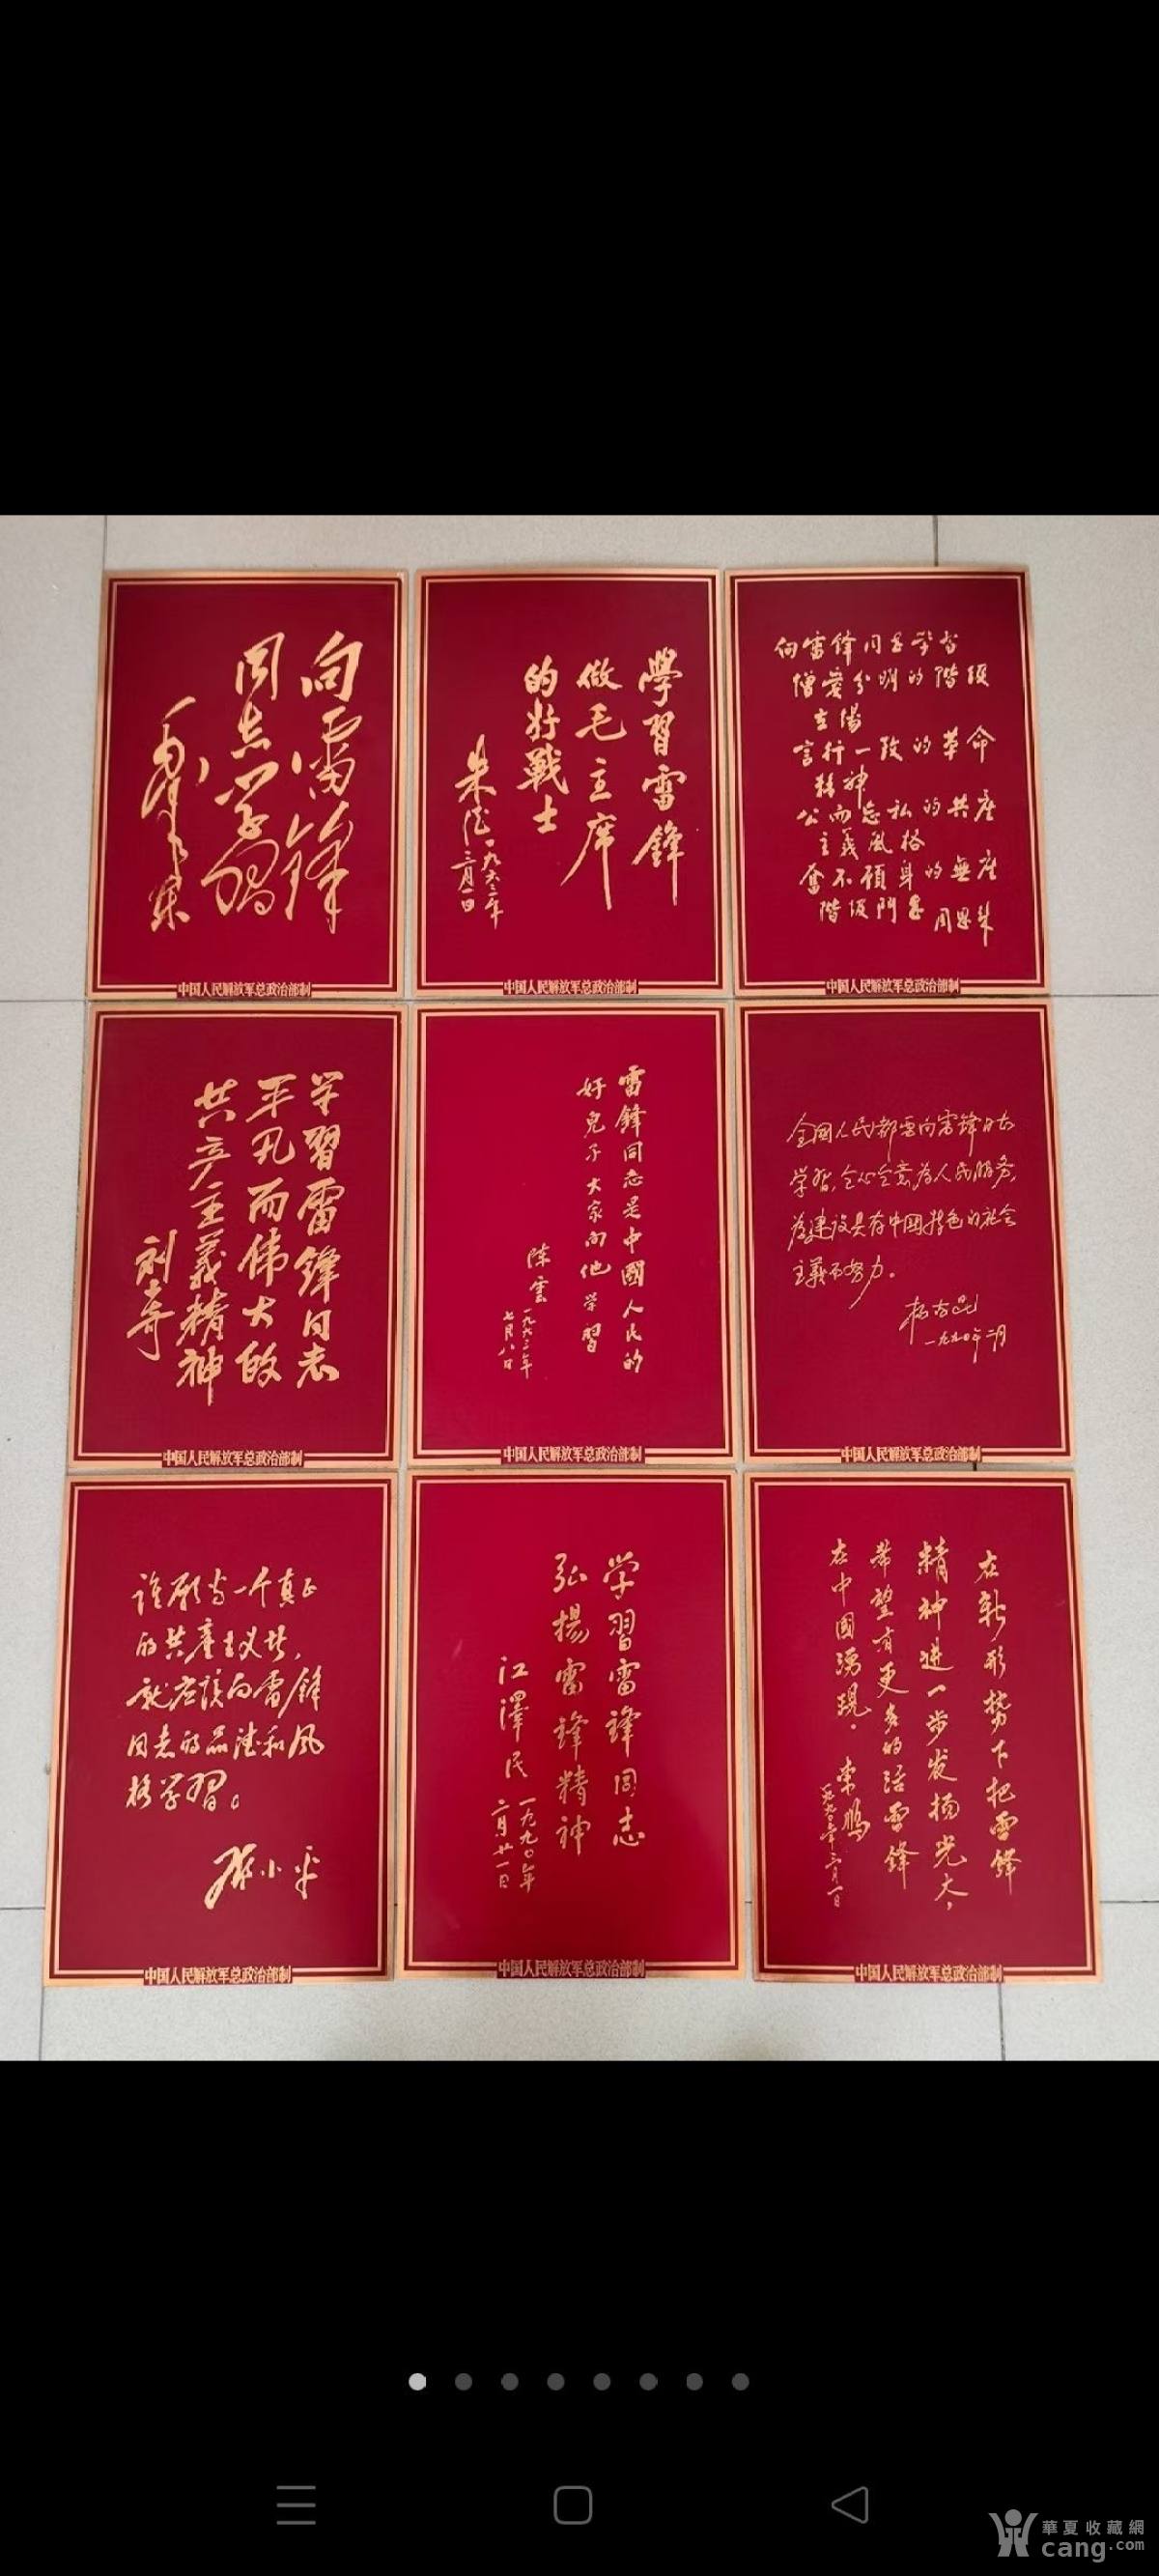 向雷锋
同志学习
毛泽东
中国人民解放军总政治部制
學習雷鋒
做毛主席
的好戰士
朱德
一九六三年
中国人民解放军总政治部制
向雷锋同志学習
憎爱分明的階級
立場
言行一致的革命
精神
公而忘私的共產
主義風格
奮不顧身的無產
階级鬥志
周恩来
中国人民解放军总政治部制
学習雷鋒同志
平凡而伟大的
共产主義精神
刘少奇
中国人民解放军总政治部制
雷鋒同志是中國人民的
好兒子大家向他学習
陈雲
七月八日
中国人民解放军总政治部制
全國人民都要向雷锋同志
学習,全心全意为人民服务,
为建设具有中国特色的社会
主義而努力。
杨尚昆
一九九〇年二月
中国人民解放军总政治部制
谁愿当一个真正
的共產主义者,
就应该向雷鋒
同志的品德和风
格学習。
邓小平
中国人民解放军总政治部制
学習雷鋒同志
弘揚雷鋒精神
江澤民
一九九〇年
二月廿一日
中国人民解放军总政治部制
在新形势下把雷鋒
精神进一步发扬光大,
希望有更多的活雷鋒
在中國湧現。
李鹏
中国人民解放军总政治部制
華夏收藏網
cang.com